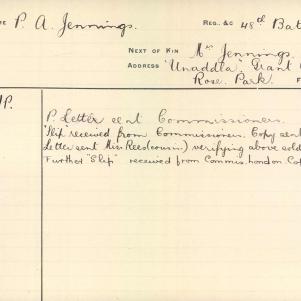 P. A. Jennings. REG. &c 48th Bat
NEXT OF KIN Mr Jennings
ADDRESS "Unaddla" Grant
Rose Park.
P. Letter sent Commissioners.
"Slip" received from Commissioners. Copy sent
Letter sent Miss Reed (cousin) verifying above sold
Further "Slip" received from Commis. London Cop